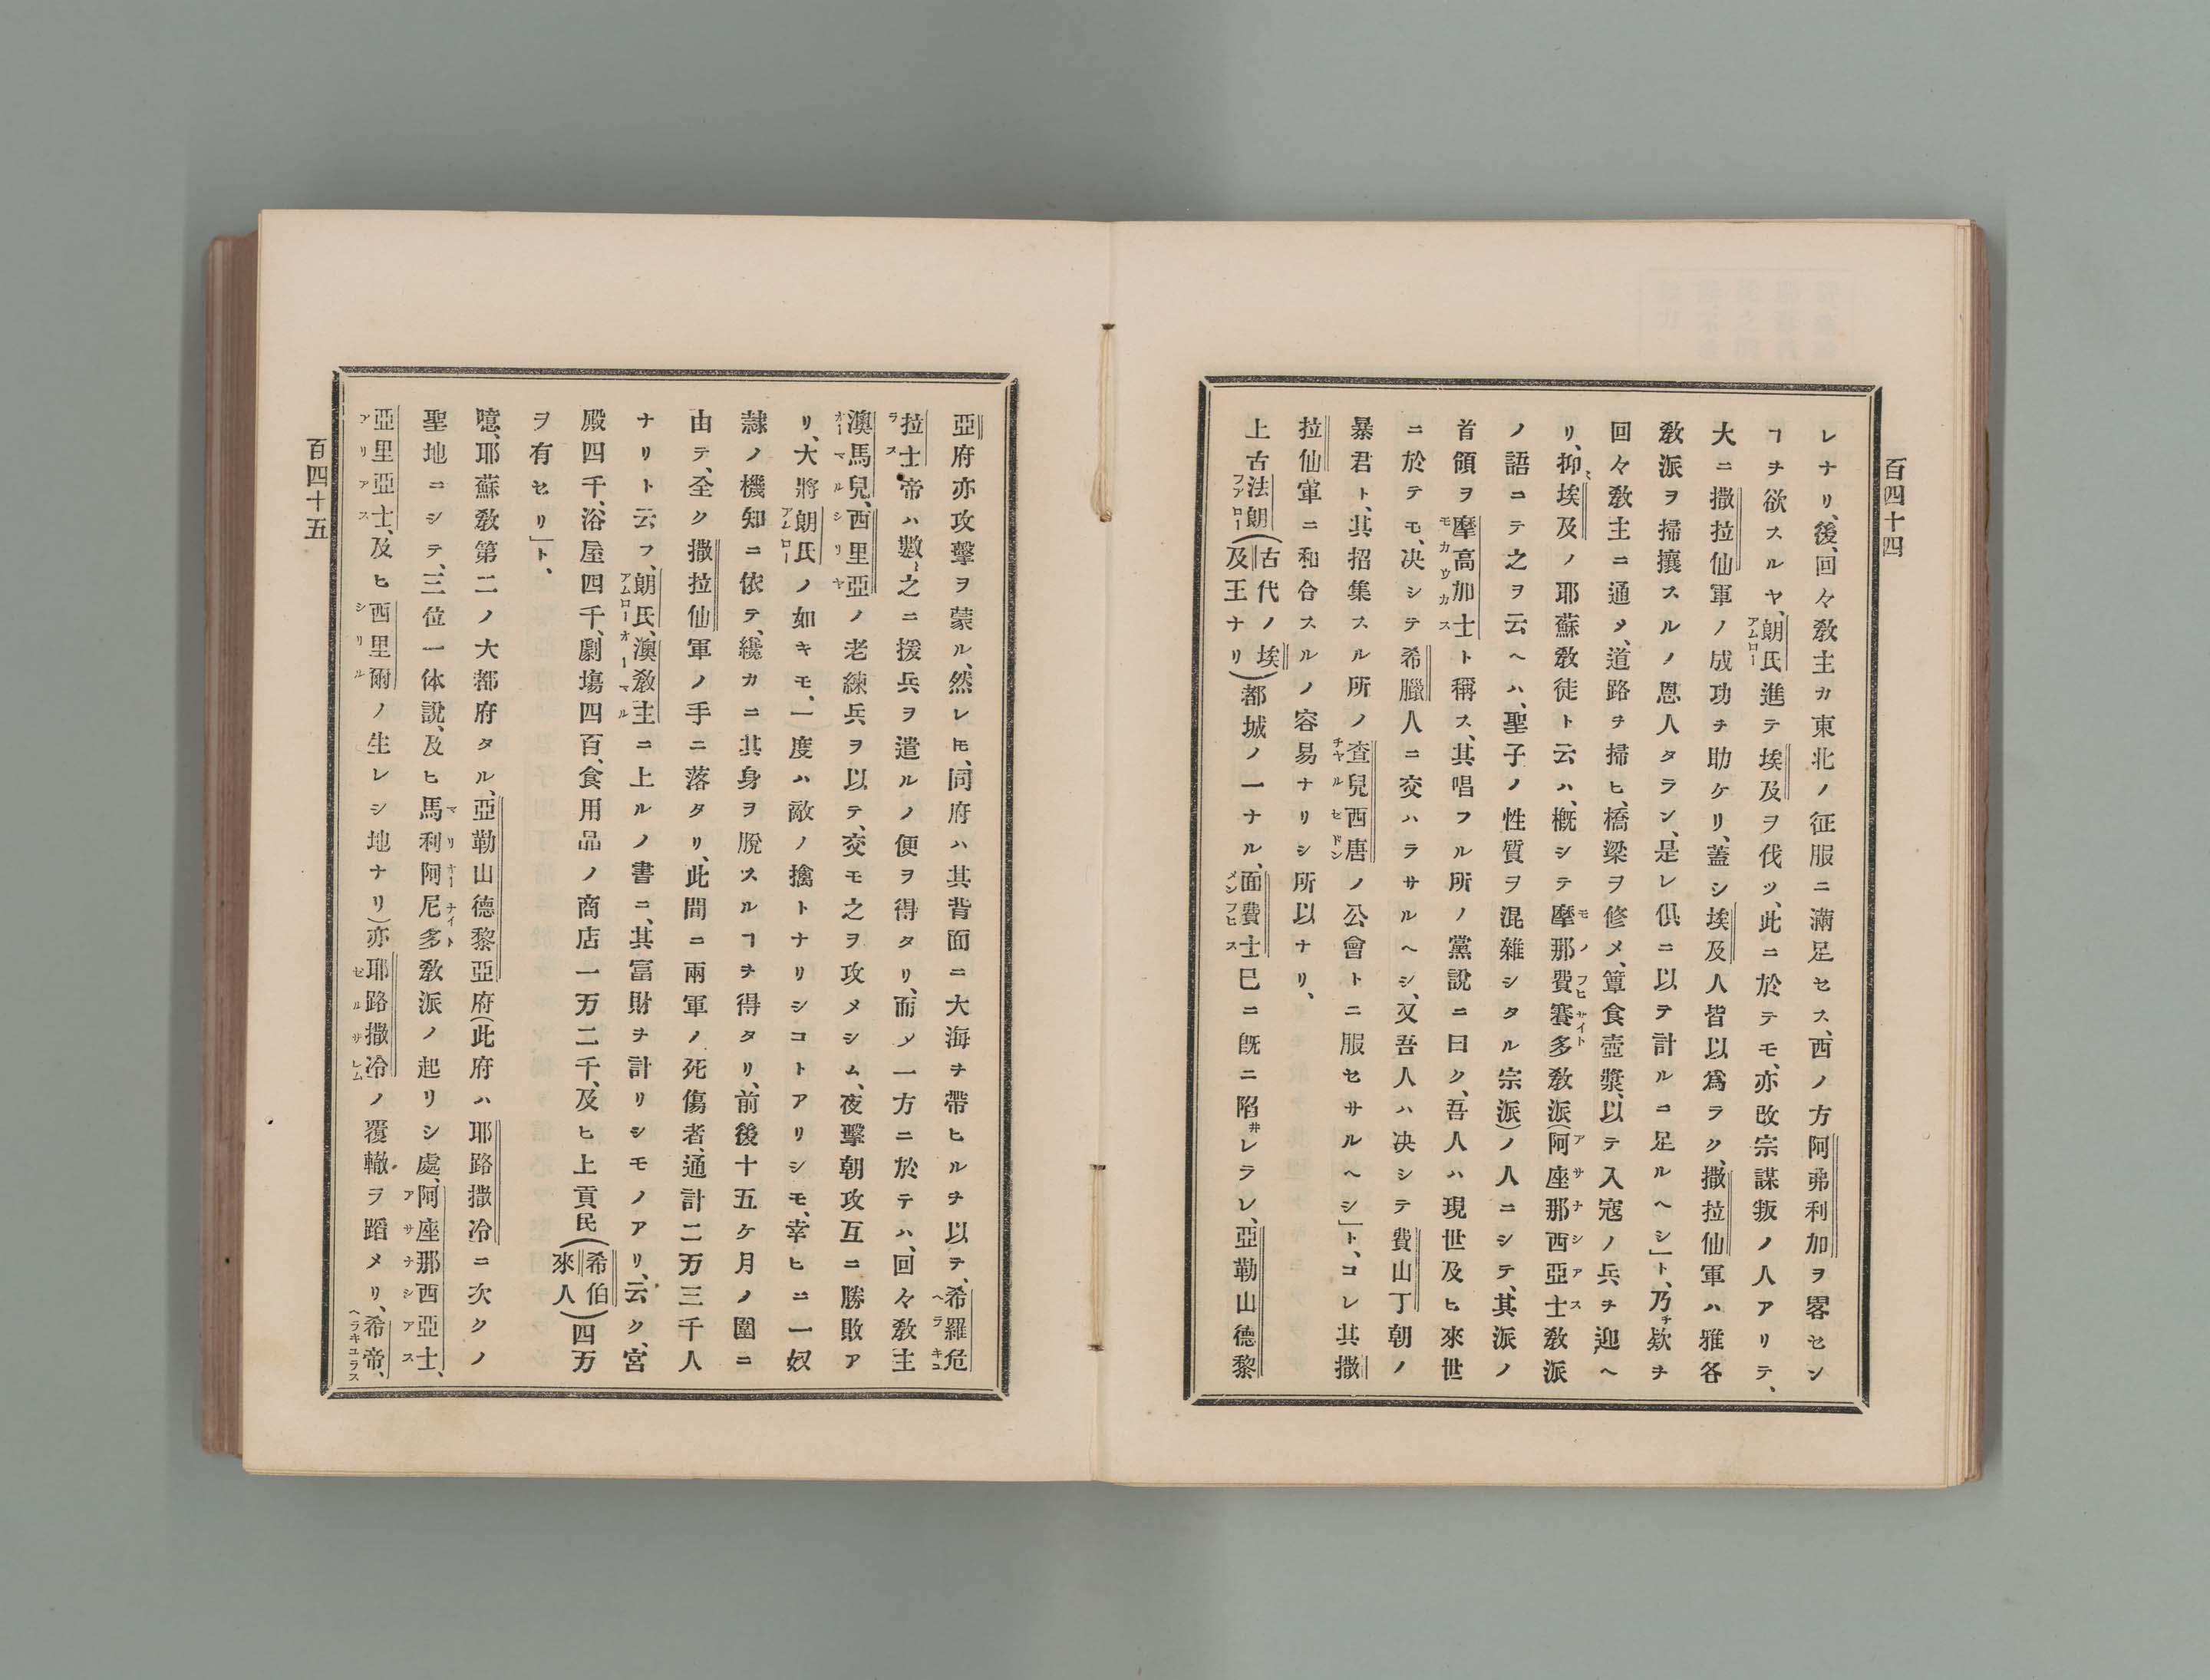 百四十四
レナリ、後、回々敎主カ東北ノ征服ニ滿足セス、西ノ方阿弗利加ヲ畧セン
ヿヲ欲スルヤ、朗氏進テ埃及ヲ伐ツ、此ニ於テモ、亦改宗謀叛ノ人アリテ、
大ニ撒拉仙軍ノ成功ヲ助ケリ、蓋シ埃及人皆以爲ラク、撒拉仙軍ハ雅各
敎派ヲ掃攘スルノ恩人タラン、是レ俱ニ以テ計ルニ足ルヘシ」ト、乃チ欵ヲ
回々敎主ニ通メ、道路ヲ掃ヒ、橋梁ヲ修メ、簞食壺漿、以テ入寇ノ兵ヲ迎ヘ
リ、抑ミ埃及ノ耶蘇敎徒ト云ハ、槪シテ摩那費賽多敎派(阿座那西亞士敎派
ノ語ニテ之ヲ云ヘハ、聖子ノ性質ヲ混雜シタル宗派)ノ人ニシテ、其派ノ
首領ヲ摩高加士ト稱ス、其唱フル所ノ黨說ニ曰ク、吾人ハ現世及ヒ來世
ニ於テモ、决シテ希臘人ニ交ハラサルヘシ、又吾人ハ决シテ費山丁朝ノ
暴君ト、其招集スル所ノ査兒西唐ノ公會トニ服セサルヘシ」ト、コレ其撒
拉仙軍ニ和合スルノ容易ナリシ所以ナリ、
上古法朗(古代ノ埃及王ナリ)都城ノ一ナル、面費士巳ニ旣ニ陷井レラレ、亞勒山德黎
亞府亦攻擊ヲ蒙ル、然レ𪜈、同府ハ其背面ニ大海ヲ帶ヒルヲ以テ、希羅危
拉士帝ハ數〻之ニ援兵ヲ遣ルノ便ヲ得タリ、而メ一方ニ於テハ、回々敎主
澳馬兒、西里亞ノ老練兵ヲ以テ、交モ之ヲ攻メシム、夜擊朝攻互ニ勝敗ア
リ、大將朗氏ノ如キモ、一度ハ敵ノ擒トナリシコトアリシモ、幸ヒニ一奴
隷ノ機知ニ依テ、纔カニ其身ヲ脫スルヿヲ得タリ、前後十五ケ月ノ圍ニ
由テ、全ク撒拉仙軍ノ手ニ落タリ、此間ニ兩軍ノ死傷者、通計二万三千人
ナリト云フ、朗氏、澳敎主ニ上ルノ書ニ、其富財ヲ計リシモノアリ、云ク、宮
殿四千、浴屋四千、劇塲四百、食用品ノ商店一万二千、及ヒ上貢民(希伯來人)四万
ヲ有セリ」ト、
噫、耶蘇敎第二ノ大都府タル、亞勒山德黎亞府(此府ハ耶路撒冷ニ次クノ
聖地ニシテ、三位一体說、及ヒ馬利阿尼多敎派ノ起リシ處、阿座那西亞士、
亞里亞士、及ヒ西里爾ノ生レシ地ナリ)亦耶路撒冷ノ覆轍ヲ蹈メリ、希帝、
百四十五